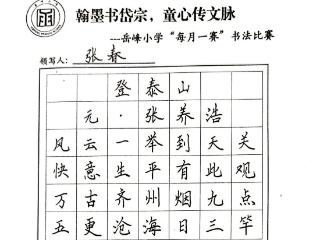 翰墨书岱宗，童心传文脉
---岳峰小学“每月一赛”书法比赛
领写人：张春
登泰山
元·张养浩
风云一举到天关
快意生平有此观
万古齐州烟九点
五更沧海日三竿